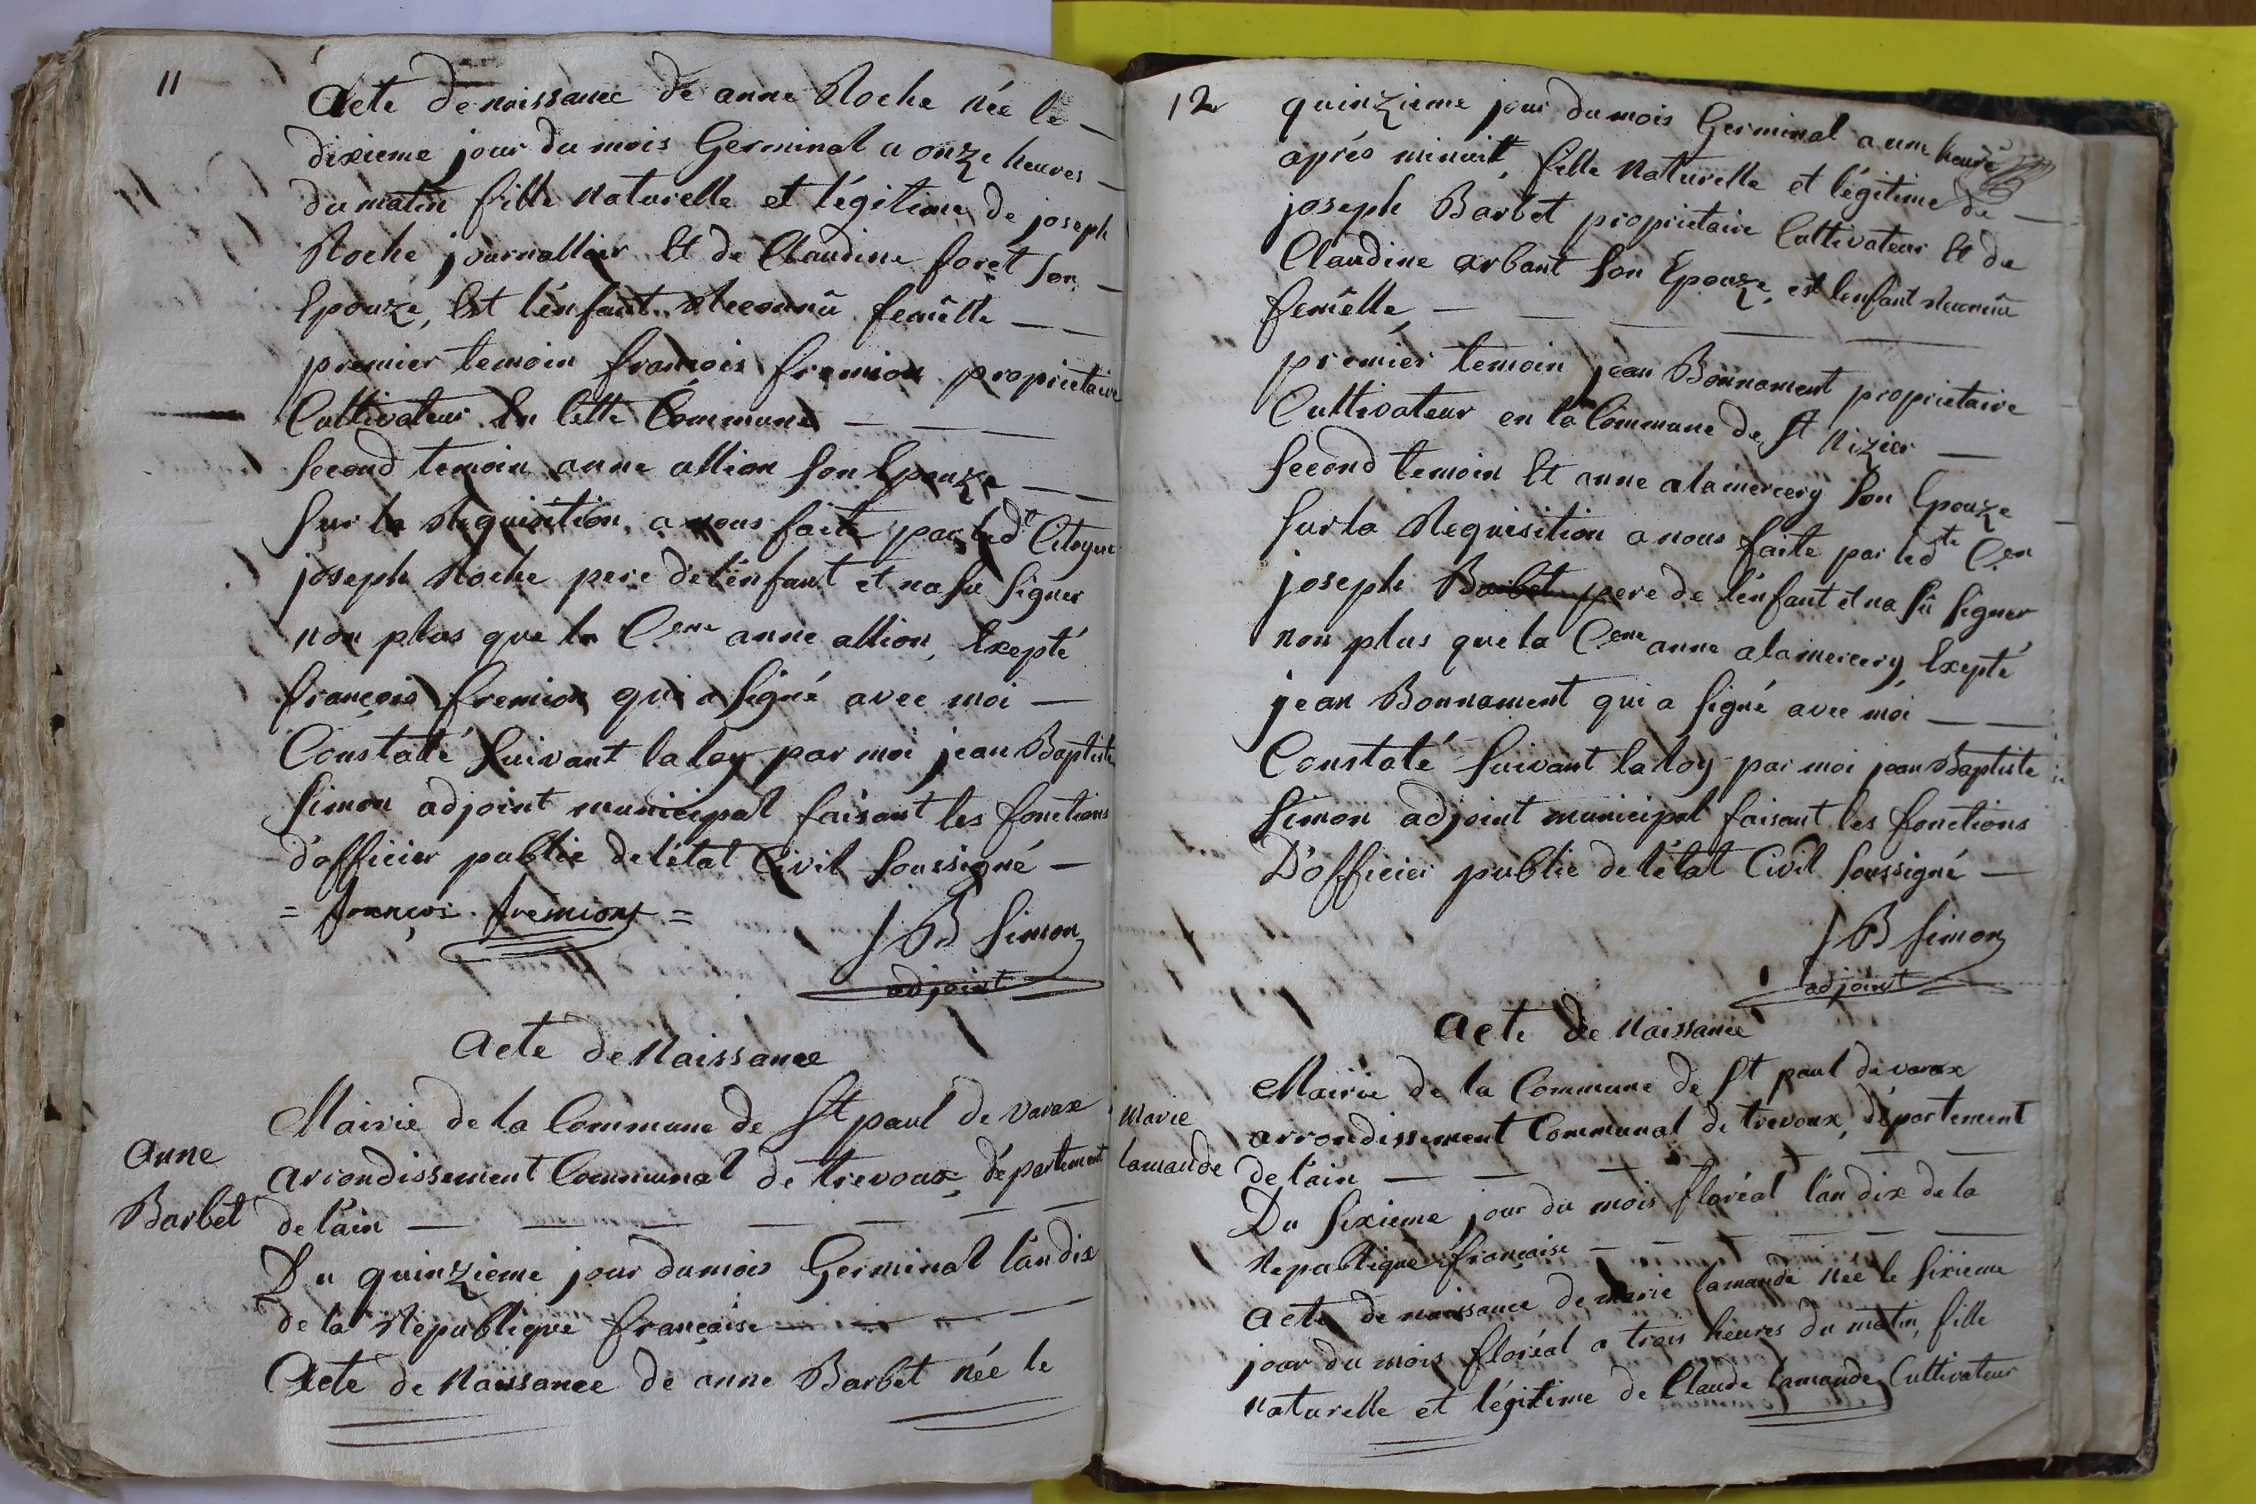 11
Acte de naissance de anne Roche née le
dixieme jour du mois Germinal a onze heures
du matin fille Naturelle et légitime de joseph
Roche journallier Et de Claudine foret son
Epouze, Est l'énfant Reconnû femêlle
premier temoin françois fremion propriétaire
Cultivateur En Cette Commune
second temoin anne allion son Epouze
sur la Requisition a nous faite par led.t Citoyen
joseph Roche pere de l'énfant et na su signer
non plus que la C.ene anne allion, Exepté
françois fremion qui a signé avec moi
Constaté suivant la loy par moi jean Baptiste
simon adjoint municipal faisant les fonctions
d'officier public de l'état Civil soussigné
= françois fremion =
J B simon
adjoint
Acte de Naissance
Anne
Barbet
Mairie de la Commune de St paul de varax
arrondissement Communal de trevoux, département
de l'ain
Du quinzieme jour du mois Germinal l'an dix
de la République française
Acte de Naissance de anne Barbet née le
12
quinzieme jour du mois Germinal a une heure
aprés minuit, fille Naturelle et légitime de
joseph Barbet propriétaire Cultivateur Et de
Claudine arbant son Epouze, est l'enfant Reconnû
femêlle
premier temoin jean Bonnament propriétaire
Cultivateur en la Commune de St Nizier
second temoin Et anne alamercery son Epouze
sur la Requisition a nous faite par led.te C.en
joseph Barbet pere de l'énfant et na sû signer
non plus que la C.ene anne alamercery Exepté
jean Bonnament qui a signé avec moi
Constaté suivant la loy par moi jean Baptiste
simon adjoint municipal faisant les fonctions
D'officier public de l'état Civil soussigné
J B simon
adjoint
Acte de Naissance
Marie
lamande
Mairie de la Commune de St paul de varax
arrondissement Communal de trevoux, département
de l'ain
Du sixieme jour du mois floréal l'an dix de la
République française
Acte de naissance de marie lamande née le sixieme
jour du mois floréal a trois heures du matin, fille
naturelle et légitime de Claude lamande Cultivateur